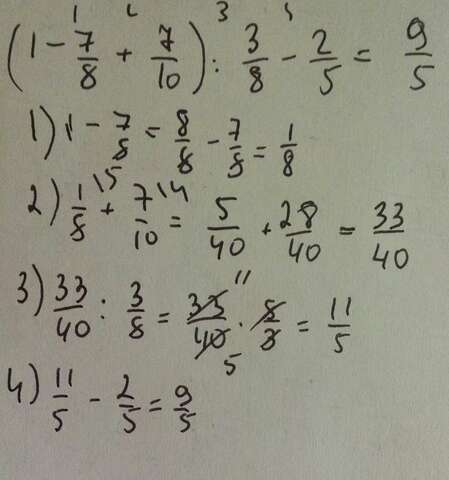 1 2 3 4
(1 - 7/8 + 7/10) : 3/8 - 2/5 = 9/5
1) 1 - 7/8 = 8/8 - 7/8 = 1/8
2) 1/8 \5 + 7/10 \4 = 5/40 + 28/40 = 33/40
3) 33/40 : 3/8 = 33/40 11 5 · 8/3 = 11/5
4) 11/5 - 2/5 = 9/5